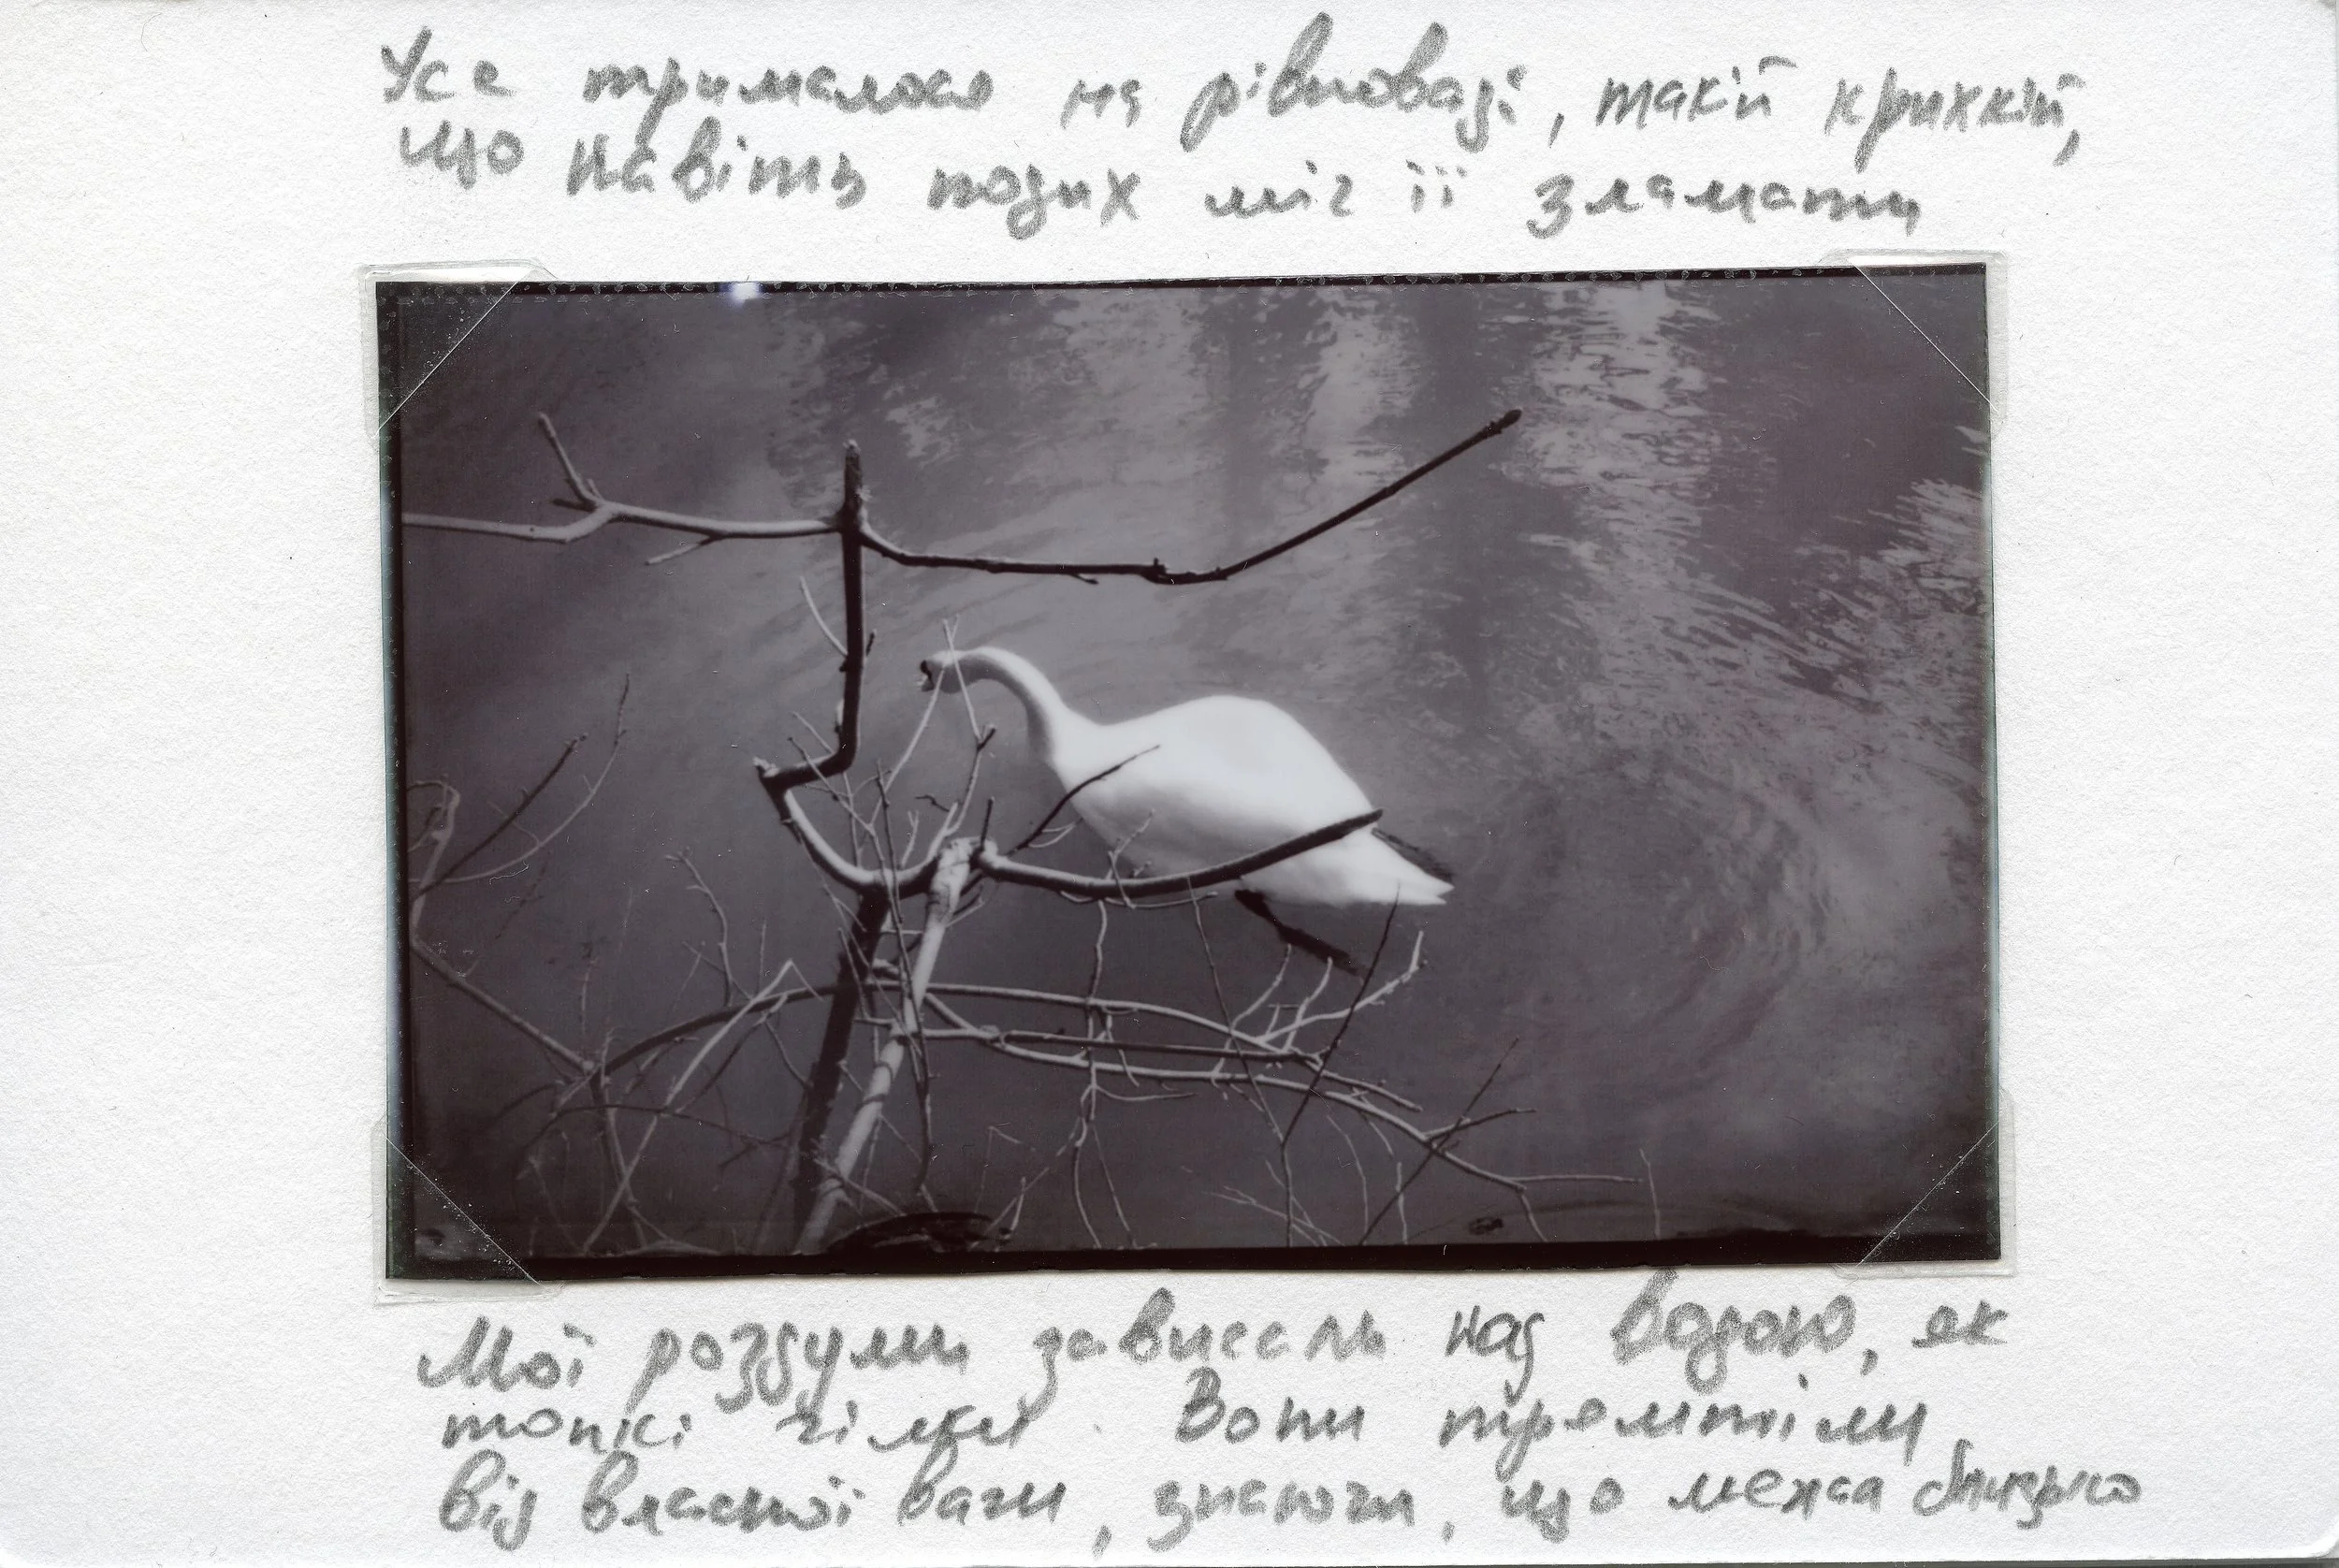 Усе трималося на рівновазі, такій крихкій,
що навіть подих міг її зламати
Мої роздуми зависали над водою, як
тонкі гілки. Вони тремтіли
від власної ваги, знаючи, що межа близько